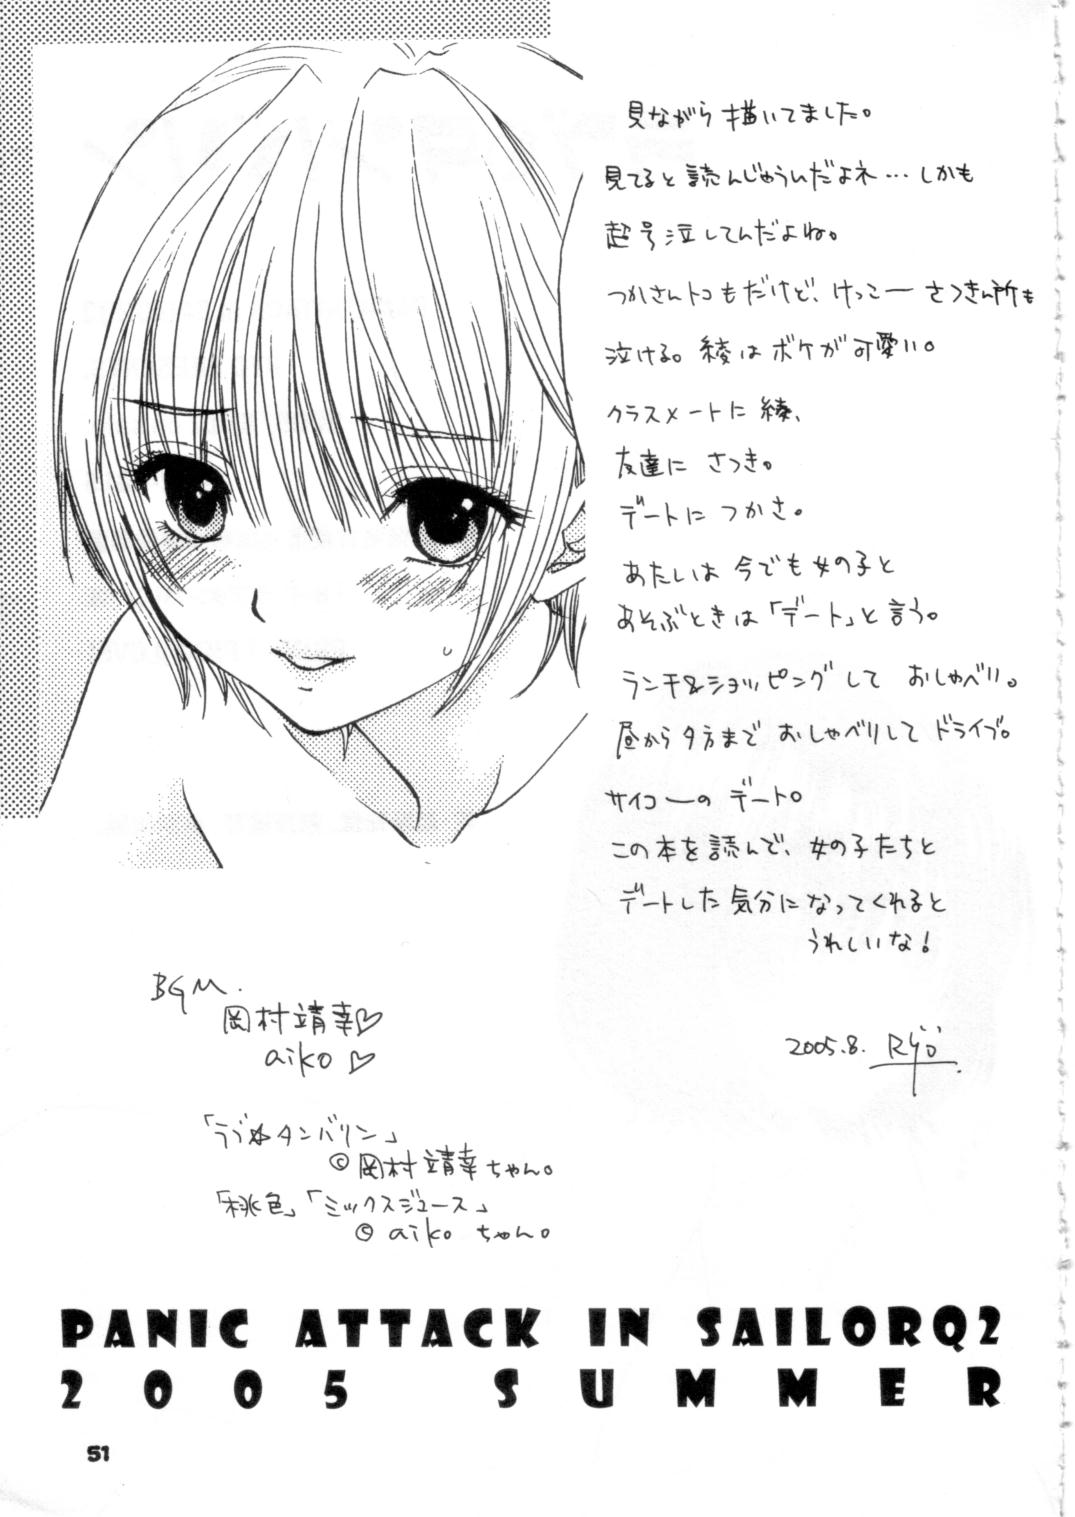 見ながら描いてました。
見てると読んじゃうんだよネ…しかも
超号泣してんだよね。
つかさんトコもだけど、けっこーさつきん所も
泣ける。綾はボケが可愛い。
クラスメートに綾、
友達にさつき。
デートにつかさ。
あたいは今でも女の子と
あそぶときは「デート」と言う。
ランチ&ショッピングしておしゃべり。
昼から夕方までおしゃべりしてドライブ。
サイコーのデート。
この本を読んで、女の子たちと
デートした気分になってくれると
うれしいな!
2005.8. Ryö
BGM.
岡村靖幸♡
aiko♡
「ラブ☆タンバリン」
©岡村靖幸ちゃん。
「桃色」「ミックスジュース」
© aikoちゃん。
PANIC ATTACK IN SAILORQ2
2005 SUMMER
51